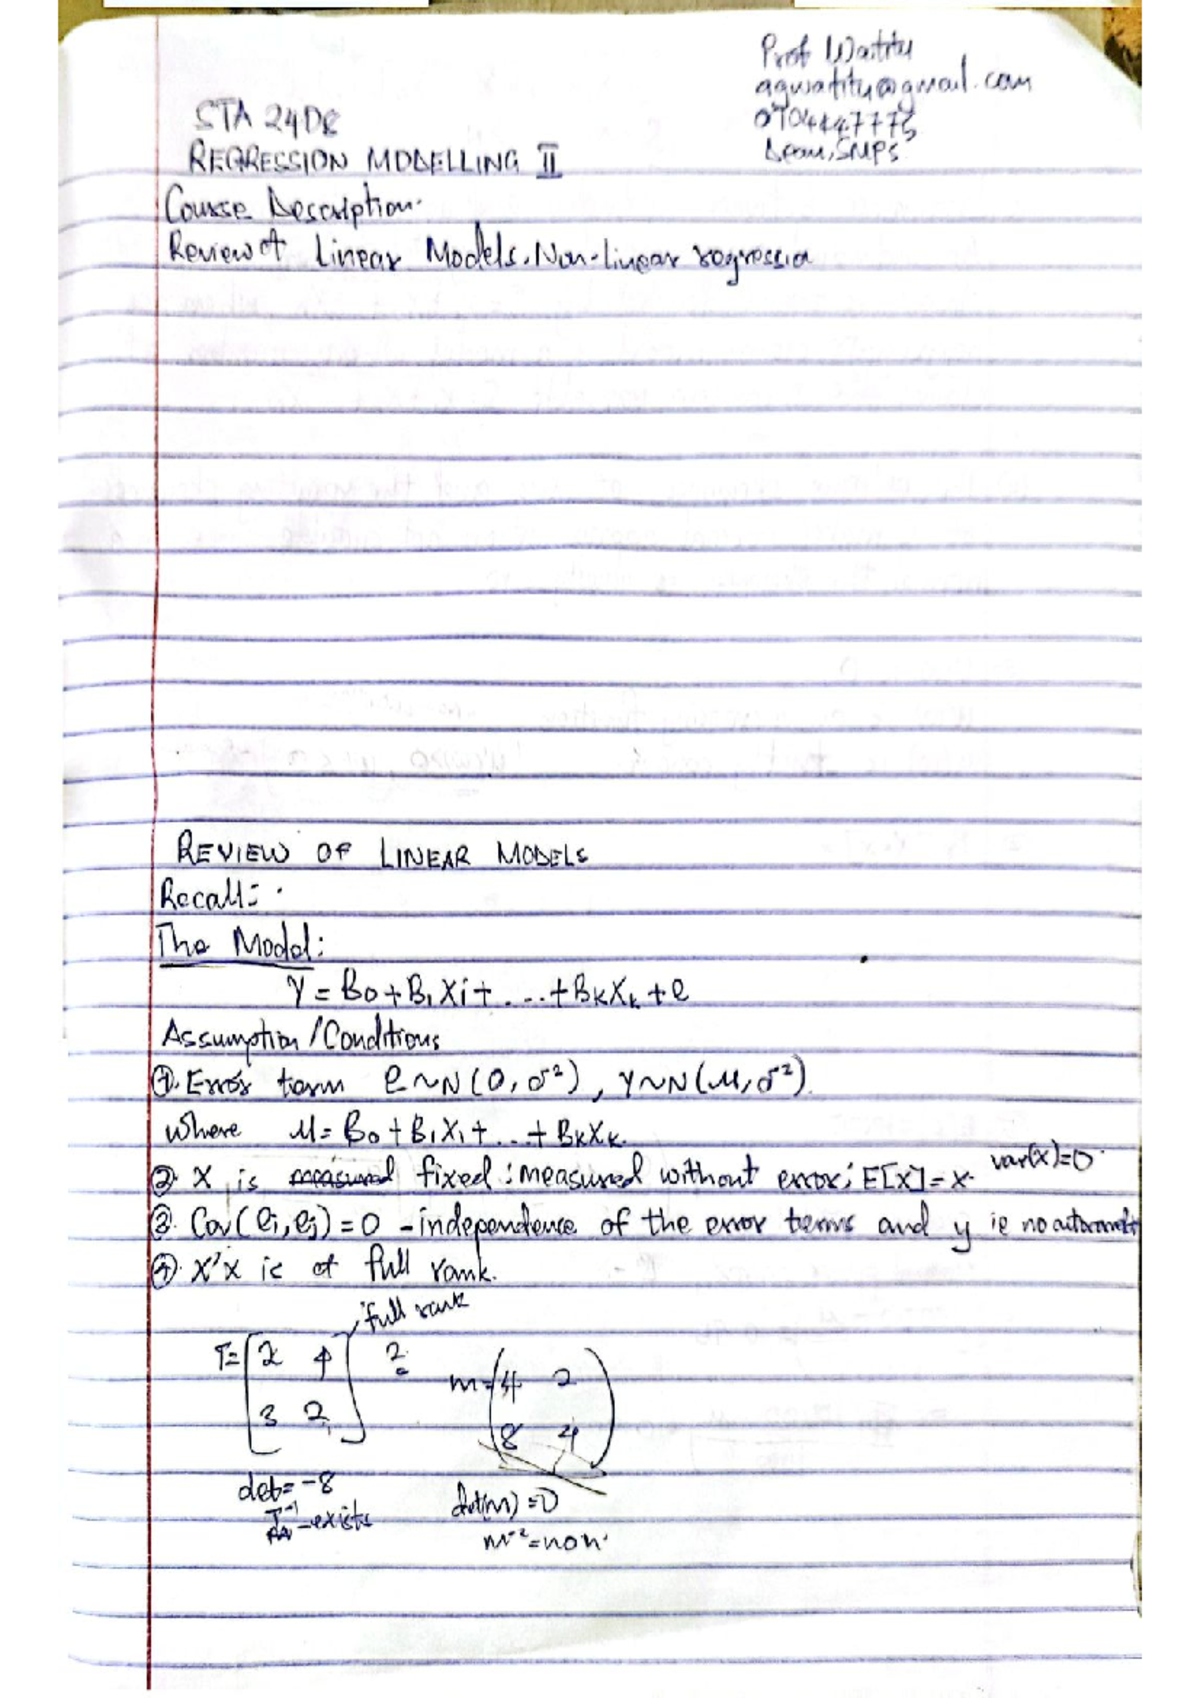 Prof Waititu
agwaititu@gmail.com
Dean, SMPS
STA 2408
REGRESSION MODELLING II
Course Description.
Review of Linear Models, Non-linear regression
REVIEW OF LINEAR MODELS
Recall:
The Model:
Y = B₀ + B₁Xi + ... + BₖXₖ + e
Assumption/Conditions
①. Error term e~N(0, σ²), Y~N(μ, σ²).
Where μ = B₀ + B₁X₁ + ... + BₖXₖ.
② X is measured fixed: measured without error; E[X]=x. var(x)=0
③. Cov(ei, ej) = 0 - independence of the error terms and y ie no
④. X'X is of full rank.
full rank
T= [2 4 2 m= (4 2
3 2] 8 4)
det= -8 det(m) = 0
T⁻¹ - exists